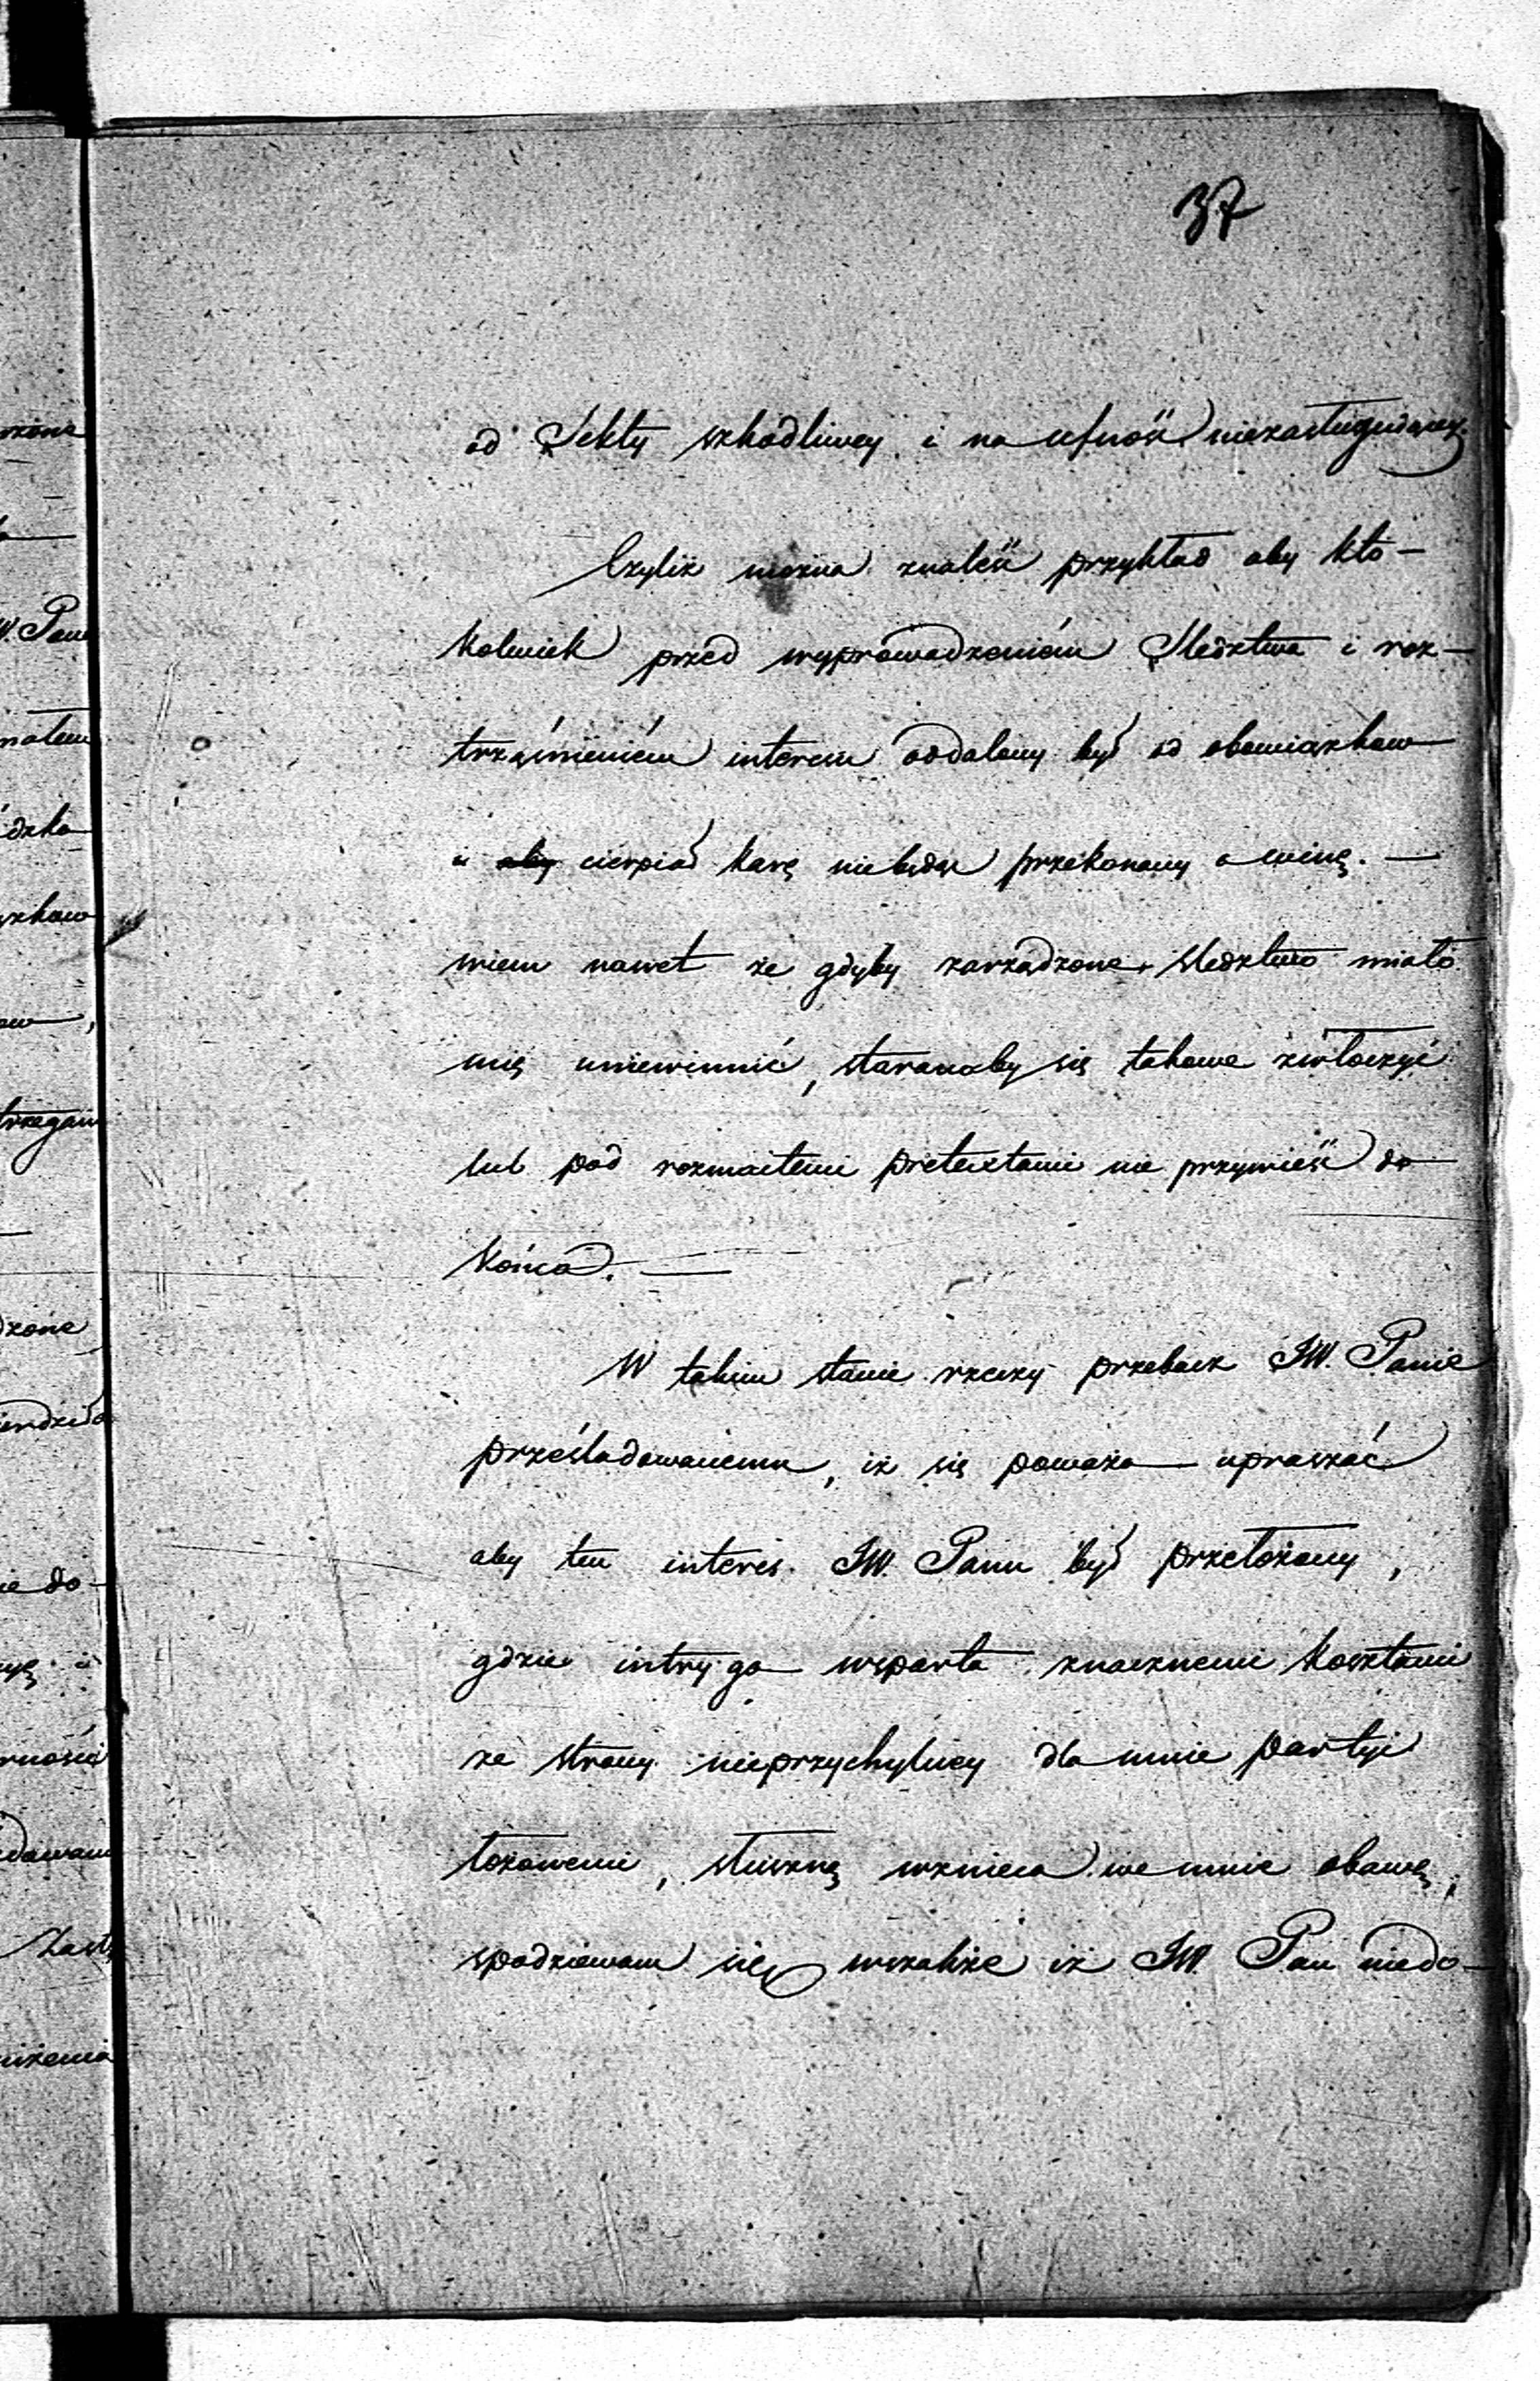 37
od Sekty szkodliwey i na ufność niezasługuiącey.
Czyliż można znaleść przykład aby kto-
kolwiek przed wyprowadzeniém Sledztwa i roz-
trząśnieniém interesu oddalony był od obowiązkow
i ~~aby~~ cierpiał karę niebędąc przekonany o winę. —
wiem nawet że gdyby zarządzone sledztwo miało
mię uniewinnić, staranoby się takowe zwłoczyć
lub pod rozmaitemi pretextami nie przywieść do
końca. —
W takim stanie rzeczy przebacz JW. Panie
prześladowanemu, iż się poważa upraszać
aby ten interes JW. Panu był przełożony,
gdzie intryga wsparta znacznemi kosztami
ze strony nieprzychylney dla mnie partyi
łożonemi, słuszną wznieca we mnie obawę,
spodziewam się wszakże iż JW. Pan niedo-